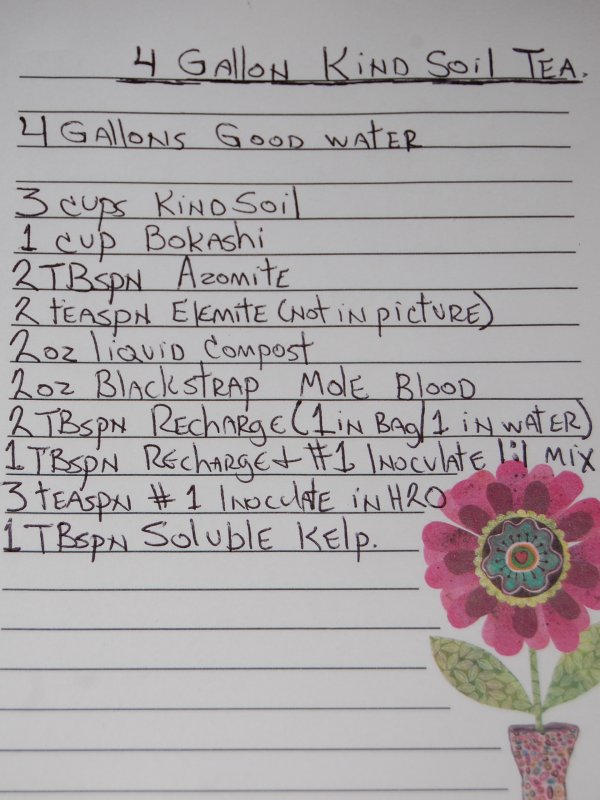 4 Gallon Kind Soil Tea.
4 Gallons Good water
3 cups Kind Soil
1 cup Bokashi
2 TBspn Azomite
2 teaspn Elemite (not in picture)
2oz liquid compost
2oz Blackstrap Mole Blood
2 TBspn Recharge (1 in Bag/1 in water)
1 TBspn Recharge + #1 Inoculate lil mix
3 teaspn #1 Inoculate in H2O
1 TBspn Soluble Kelp.